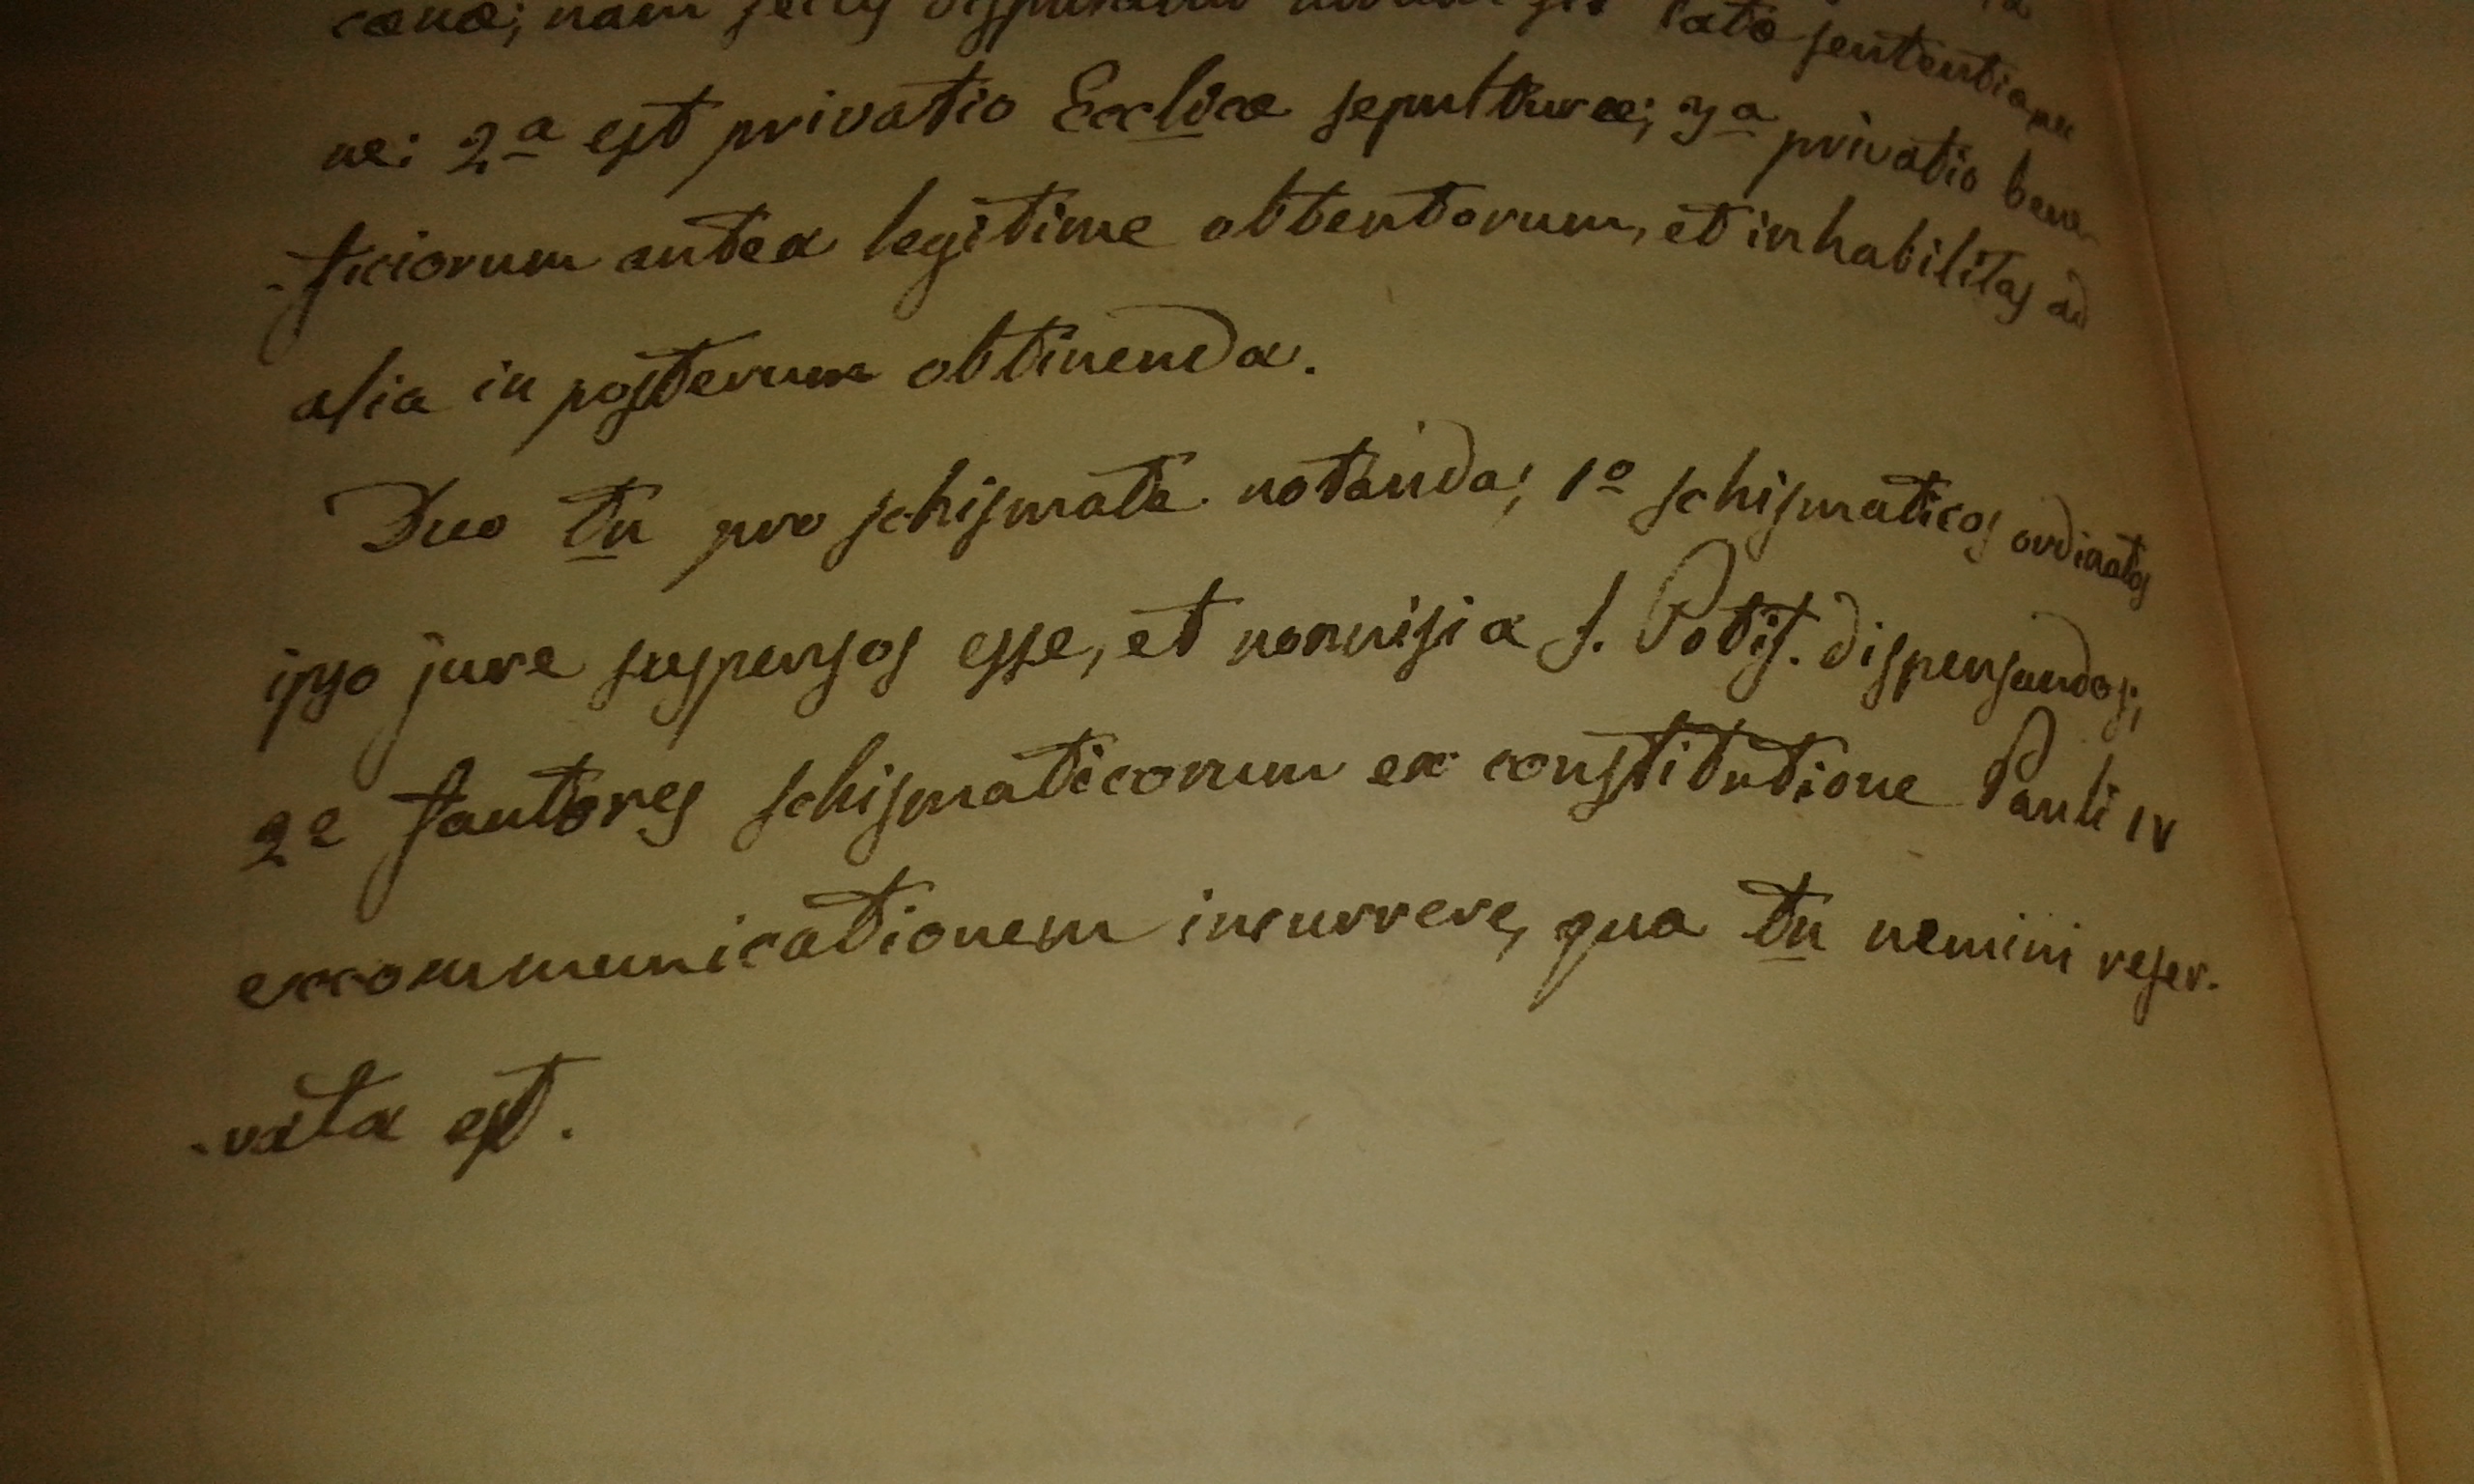 canæ; nam secus disputatur lato sententiam
ne: 2a est privatio Ecclicæ sepulturæ; 3a privatio bene-
-ficiorum antea legitime obtentorum, et inhabilitas ad
alia in posterum obtinenda.
Duo tn pro schismate notanda; 1o schismaticos ordinatos
ipso jure suspensos esse, et nonnisi a S. Potif. dispensandos;
2e fautores schismaticorum ex constitutione Pauli IV
excommunicationem incurrere, qua tn nemini reser.
-vata est.